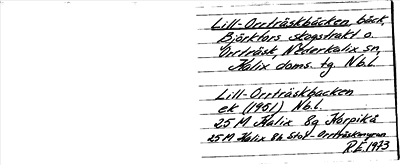 Lill-Orrträskbäcken, bäck,
Björkfors skogstrakt o.
Orrträsk, Nederkalix sn,
Kalix doms. tg Nb.l.
Lill-Orrträskbäcken
ek (1951) Nb.l.
25 M Kalix 8g Korpikå
25 M Kalix 8h Stor-Orrträskmyran
R.E. 1973